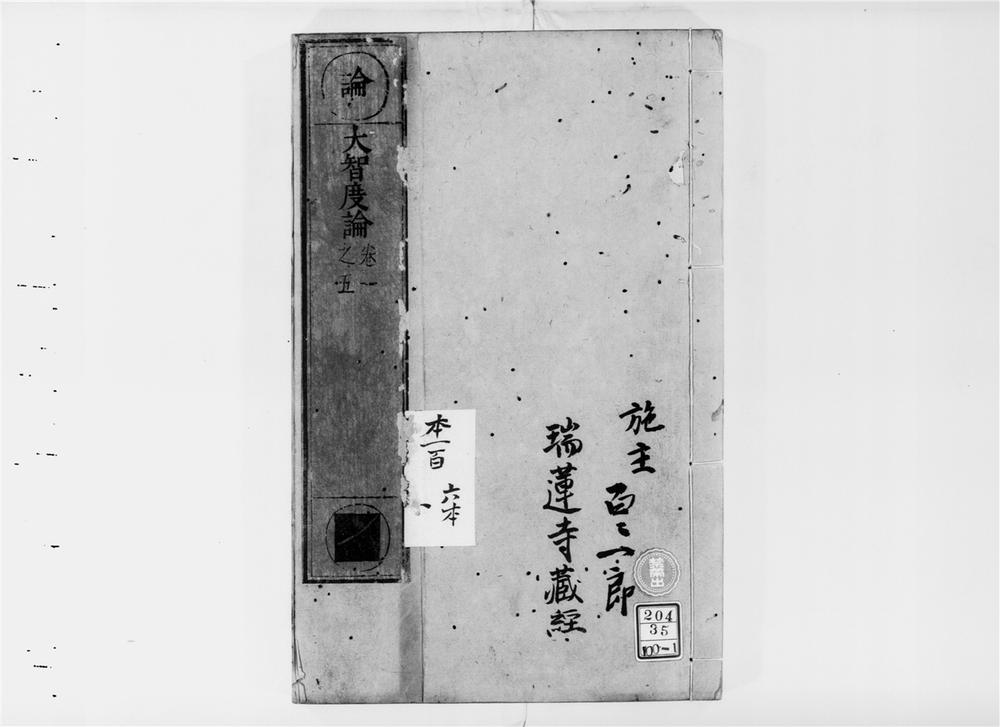 論
大智度論
卷一
之五
本一百
六本
一
施主
瑞蓮寺藏経
禁帯出
204
35
100-1